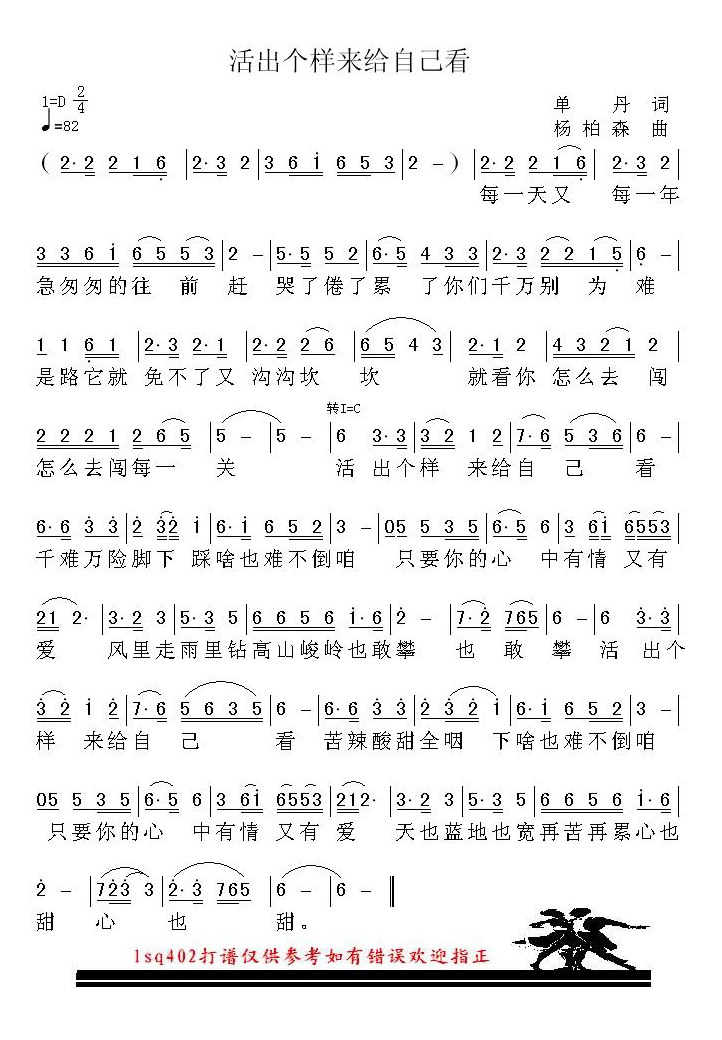 活出个样来给自己看
1=D 2/4
♩=82
单 丹 词
杨 柏 森 曲
( 2· 2 2 1 6 | 2· 3 2 | 3 6 i 6 5 3 | 2 – ) | 2· 2 2 1 6 | 2· 3 2 |
每一天又 每一年
3 3 6 i 6 5 5 3 | 2 – | 5· 5 5 2 | 6· 5 4 3 3 | 2· 3 2 2 1 5 | 6 – |
急匆匆的往 前 赶 哭了倦了累 了你们千万别 为 难
1 1 6 1 | 2· 3 2 1 | 2· 2 2 6 | 6 5 4 3 | 2· 1 2 | 4 3 2 1 2 |
是路它就 免不了又 沟沟坎 坎 就看你 怎么去 闯
转1=C
2 2 2 1 2 6 5 | 5 – | 5 – | 6 3· 3 | 3 2 1 2 | 7· 6 5 3 6 | 6 – |
怎么去闯每一 关 活 出个样 来给自 己 看
6· 6 3 3 | 2 3 2 i | 6· i 6 5 2 | 3 – | 05 5 3 5 | 6· 5 6 | 3 6i 6553 |
千难万险脚下 踩啥也难不倒咱 只要你的心 中有情 又有
21 2· | 3· 2 3 | 5· 3 5 | 6 6 5 6 i· 6 | 2 – | 7· 2 765 | 6 – | 6 3· 3 |
爱 风里走雨里钻高山峻岭也敢攀 也 敢 攀活 出个
3 2 i 2 | 7· 6 5 6 3 5 | 6 – | 6· 6 3 3 | 2 3 2 i | 6· i 6 5 2 | 3 – |
样 来给自 己 看 苦辣酸甜全咽 下啥也难不倒咱
05 5 3 5 | 6· 5 6 | 3 6i 6553 | 212· | 3· 2 3 | 5· 3 5 | 6 6 5 6 i· 6 |
只要你的心 中有情 又有 爱 天也蓝地也宽再苦再累心也
2 – | 723 3 | 2· 3 765 | 6 – | 6 – ‖
甜 心 也 甜。
lsq402打谱仅供参考如有错误欢迎指正